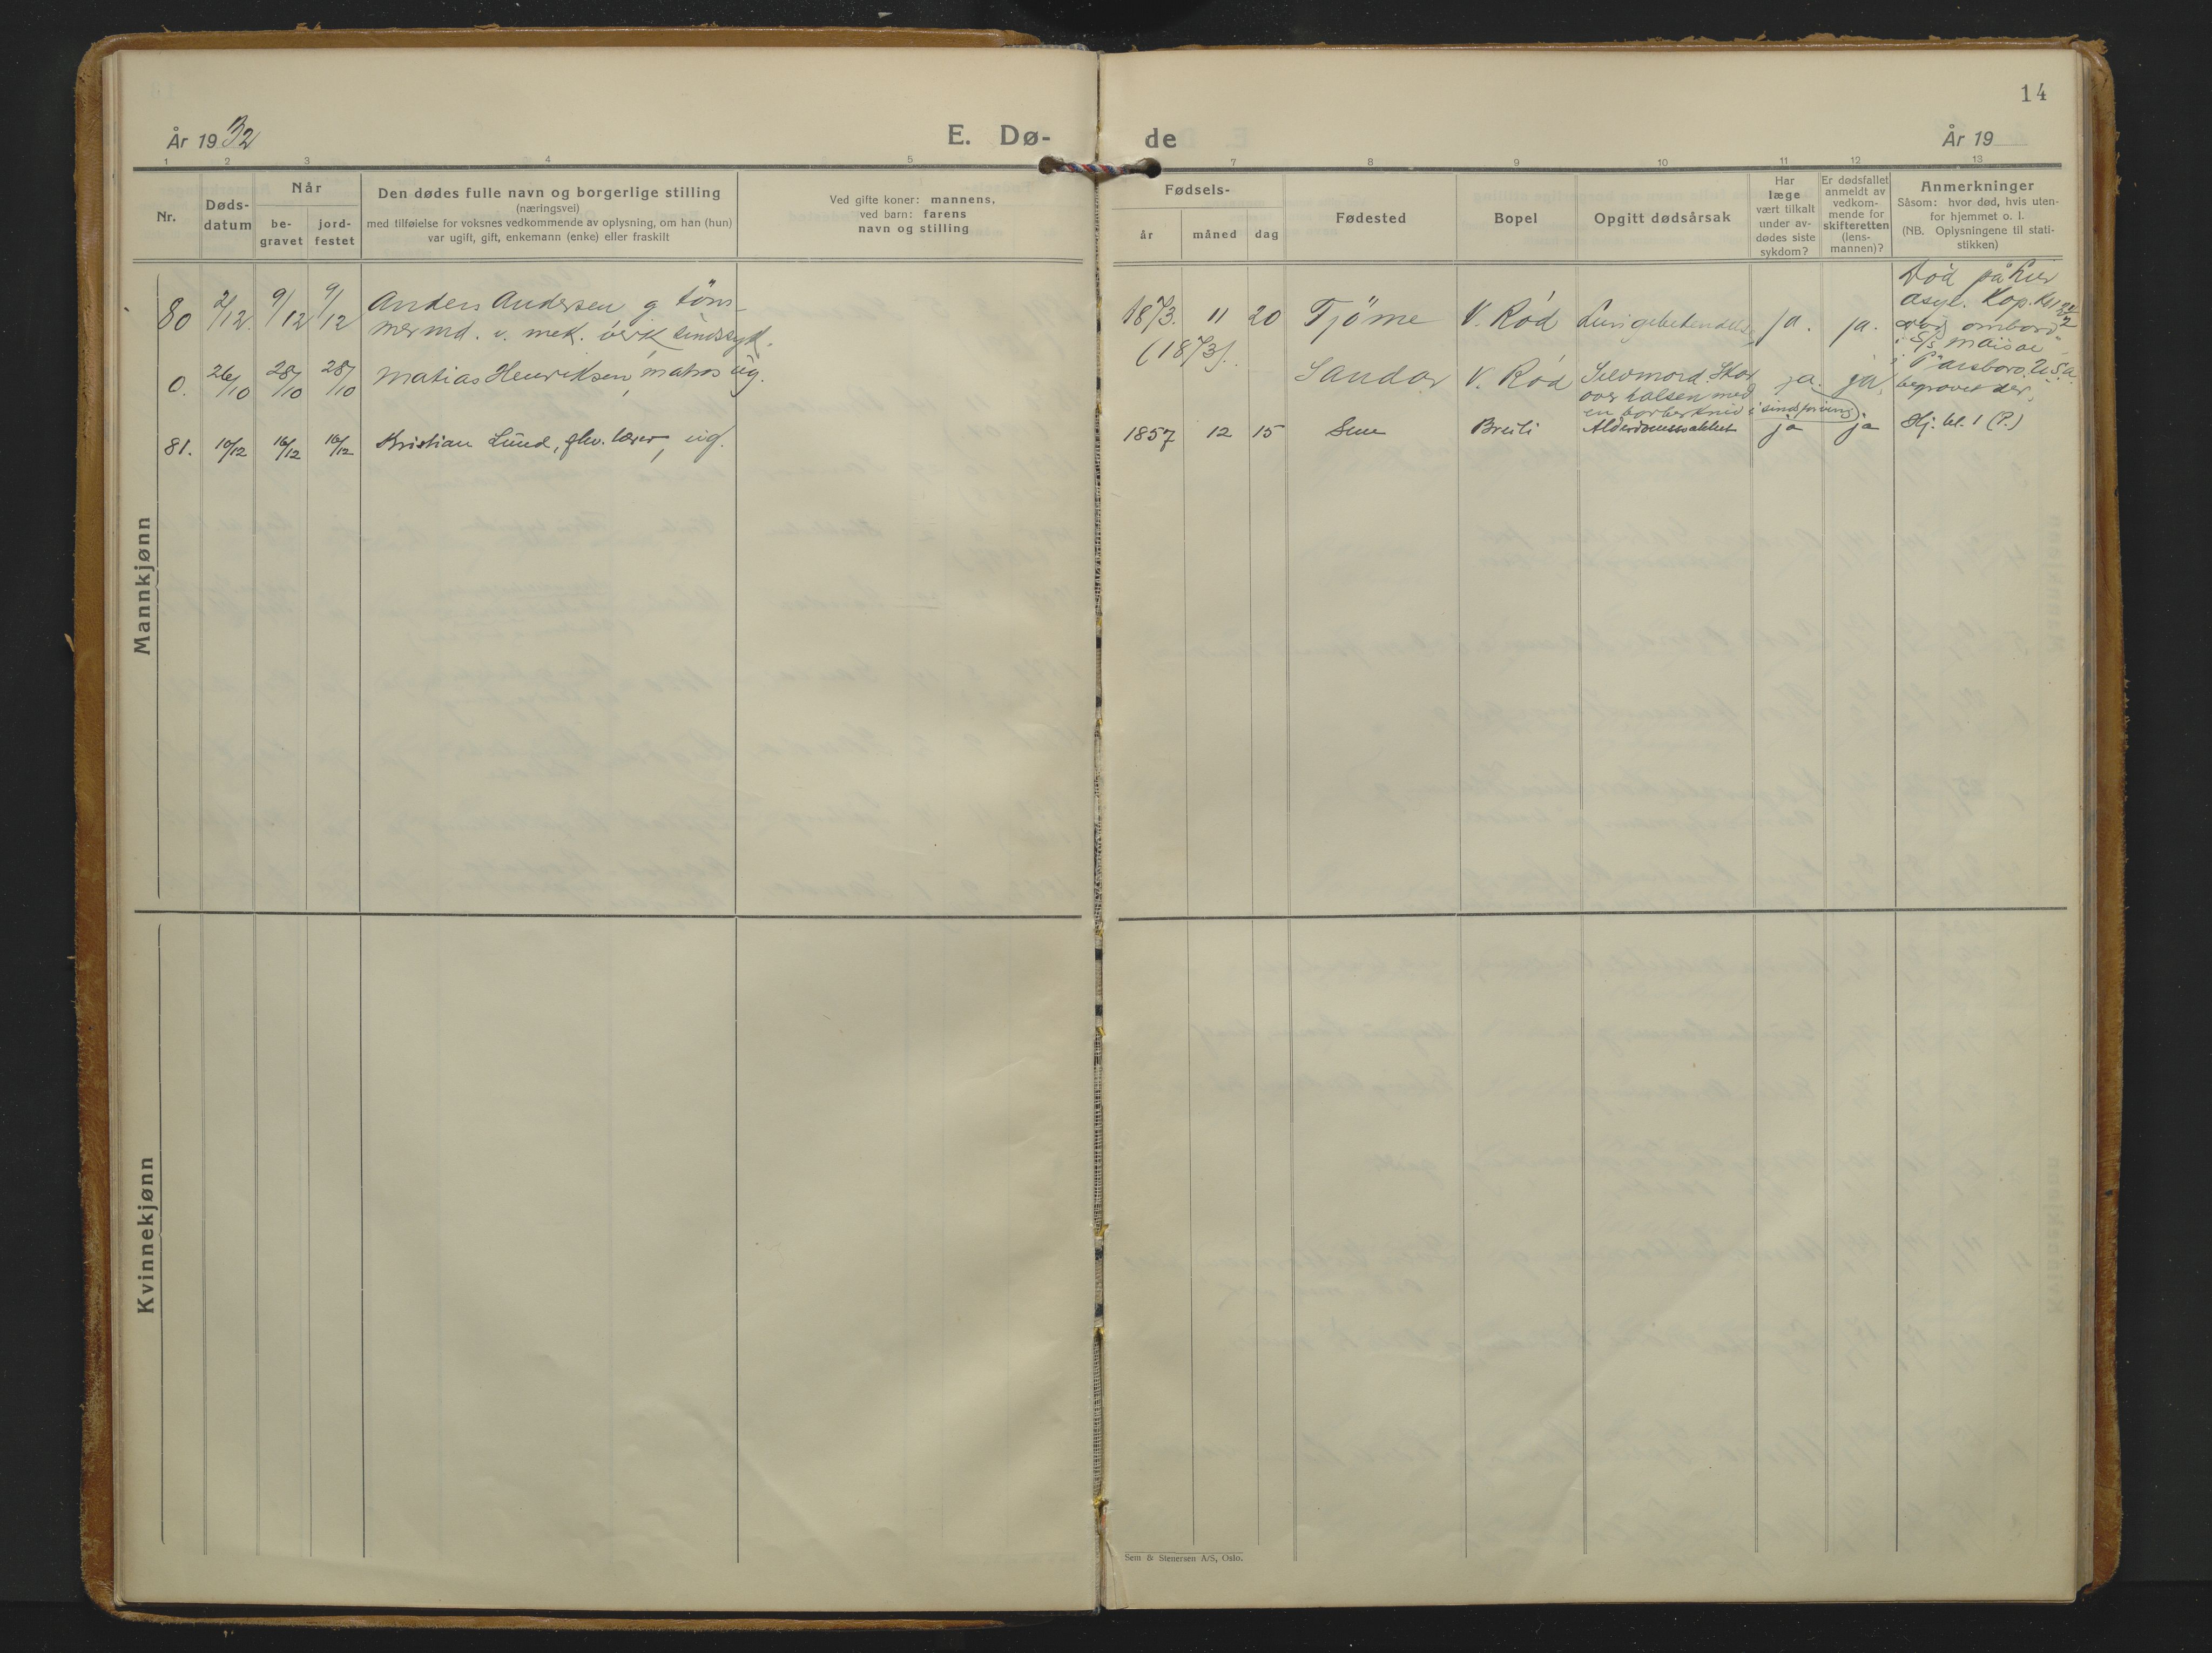 14
År 1932
E. Dø-
de
År 19
1 2 3 4 5
7 8 9 10 11 12 13
Nr.
Døds-
datum
Når
be-
gravet
jord-
festet
Den dødes fulle navn og borgerlige stilling
(næringsvei)
med tilføielse for voksnes vedkommende av oplysning, om han (hun)
var ugift, gift, enkemann (enke) eller fraskilt
Ved gifte koner: mannens,
ved barn: farens
navn og stilling
Fødsels-
år
måned
dag
Fødested
Bopel
Opgitt dødsårsak
Har
læge
vært tilkalt
under av-
dødes siste
sykdom?
Er dødsfallet
anmeldt av
vedkom-
mende for
skifteretten
(lens-
mannen)?
Anmerkninger
Såsom: hvor død, hvis uten-
for hjemmet o. l.
(NB. Oplysningene til stati-
stikken)
Mannkjønn
80 2/12. 9/12 9/12 Anders Andersen, g. töm-
mermd. v. mek. verk sindssyk.
1873. 11 20 Tjöme V. Rød Lungebetendelse ja. ja.
(1873).
Død på Lier
asyl. Kap.
0. 26/10 28/10 28/10 Matias Henriksen, matros ug.
Sandar V. Rød Selvmord. Skar
over halsen med
en barberkniv i sindsforvirring.
ja. ja.
ombord
i S/S
i Paulsboro, U.S.a.
begravet der.
81. 10/12 16/12 16/12 Kristian Lund, fhv. lærer, ug.
1857 12 15 Sem Breili Alderdomssvakhet ja ja Hj. bl. 1 (P.)
Kvinnekjønn
Sem & Stenersen A/S, Oslo.